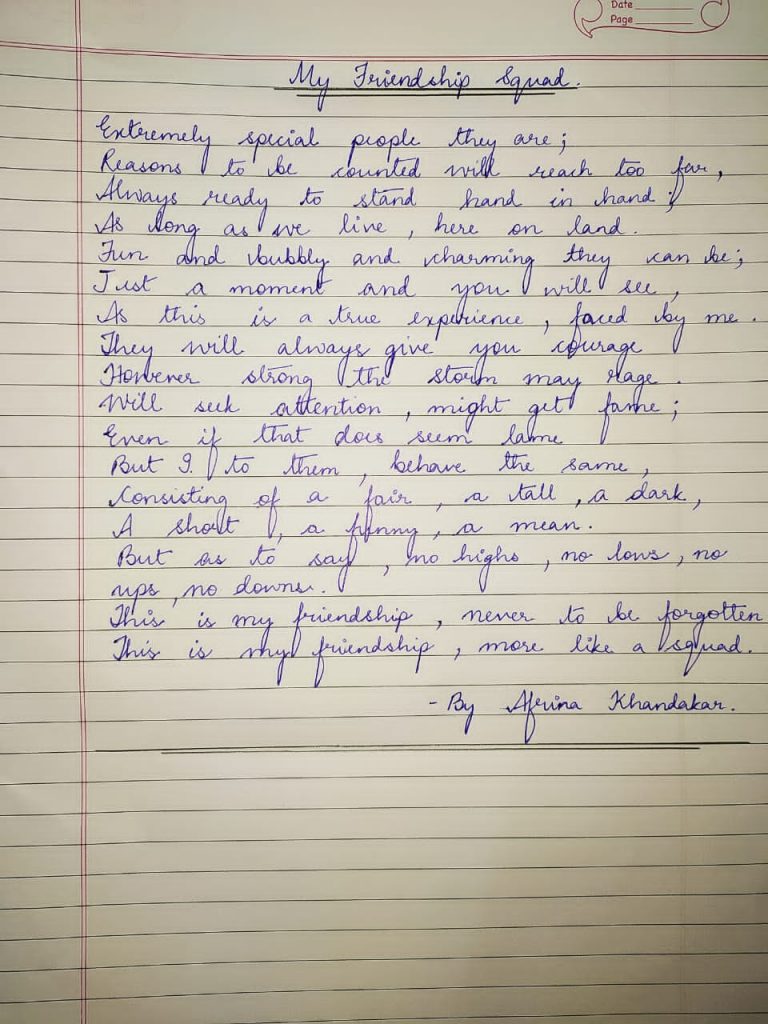 Date
Page
My Friendship Squad.
Extremely special people they are;
Reasons to be counted will reach too far,
Always ready to stand hand in hand;
As long as we live, here on land.
Fun and bubbly and charming they can be;
Just a moment and you will see,
As this is a true experience, faced by me.
They will always give you courage
However strong the storm may rage.
Will seek attention, might get fame;
Even if that does seem lame
But I. to them, behave the same,
Consisting of a fair, a tall, a dark,
A short, a funny, a mean.
But as to say, no highs, no lows, no
ups, no downs.
This is my friendship, never to be forgotten
This is my friendship, more like a squad.
- By Afrina Khandakar.